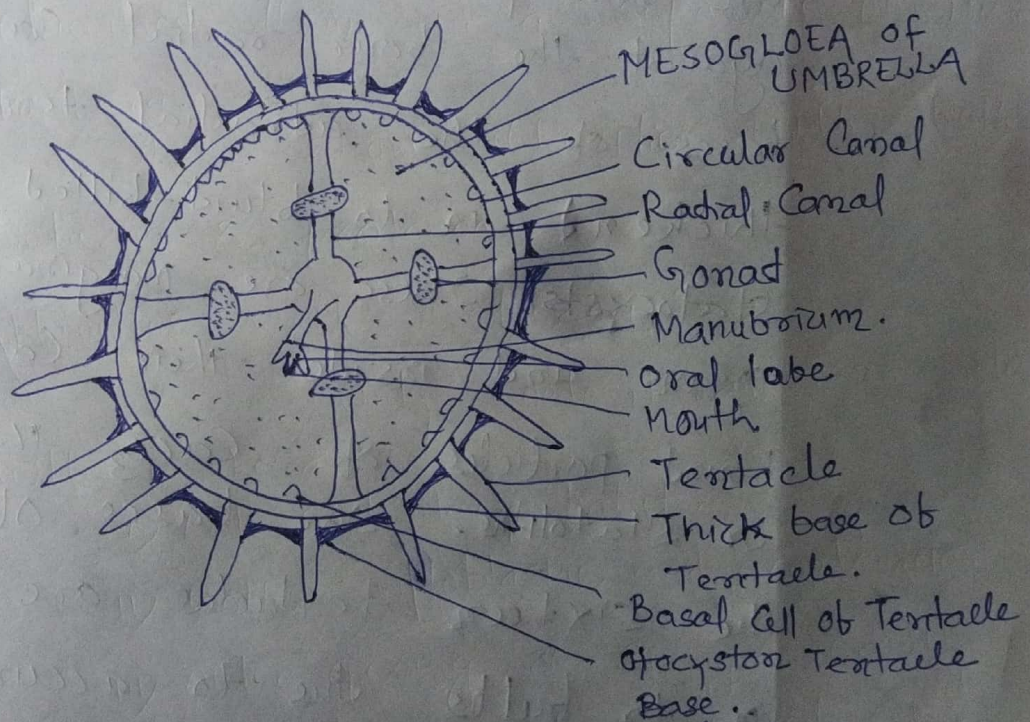 MESOGLOEA of
UMBRELLA
Circular Canal
Radial Canal
Gonad
Manubrium.
Oral labe
Mouth
Tentacle
Thick base of
Tentacle.
Basal Cell of Tentacle
Otocyston Tentacle
Base..